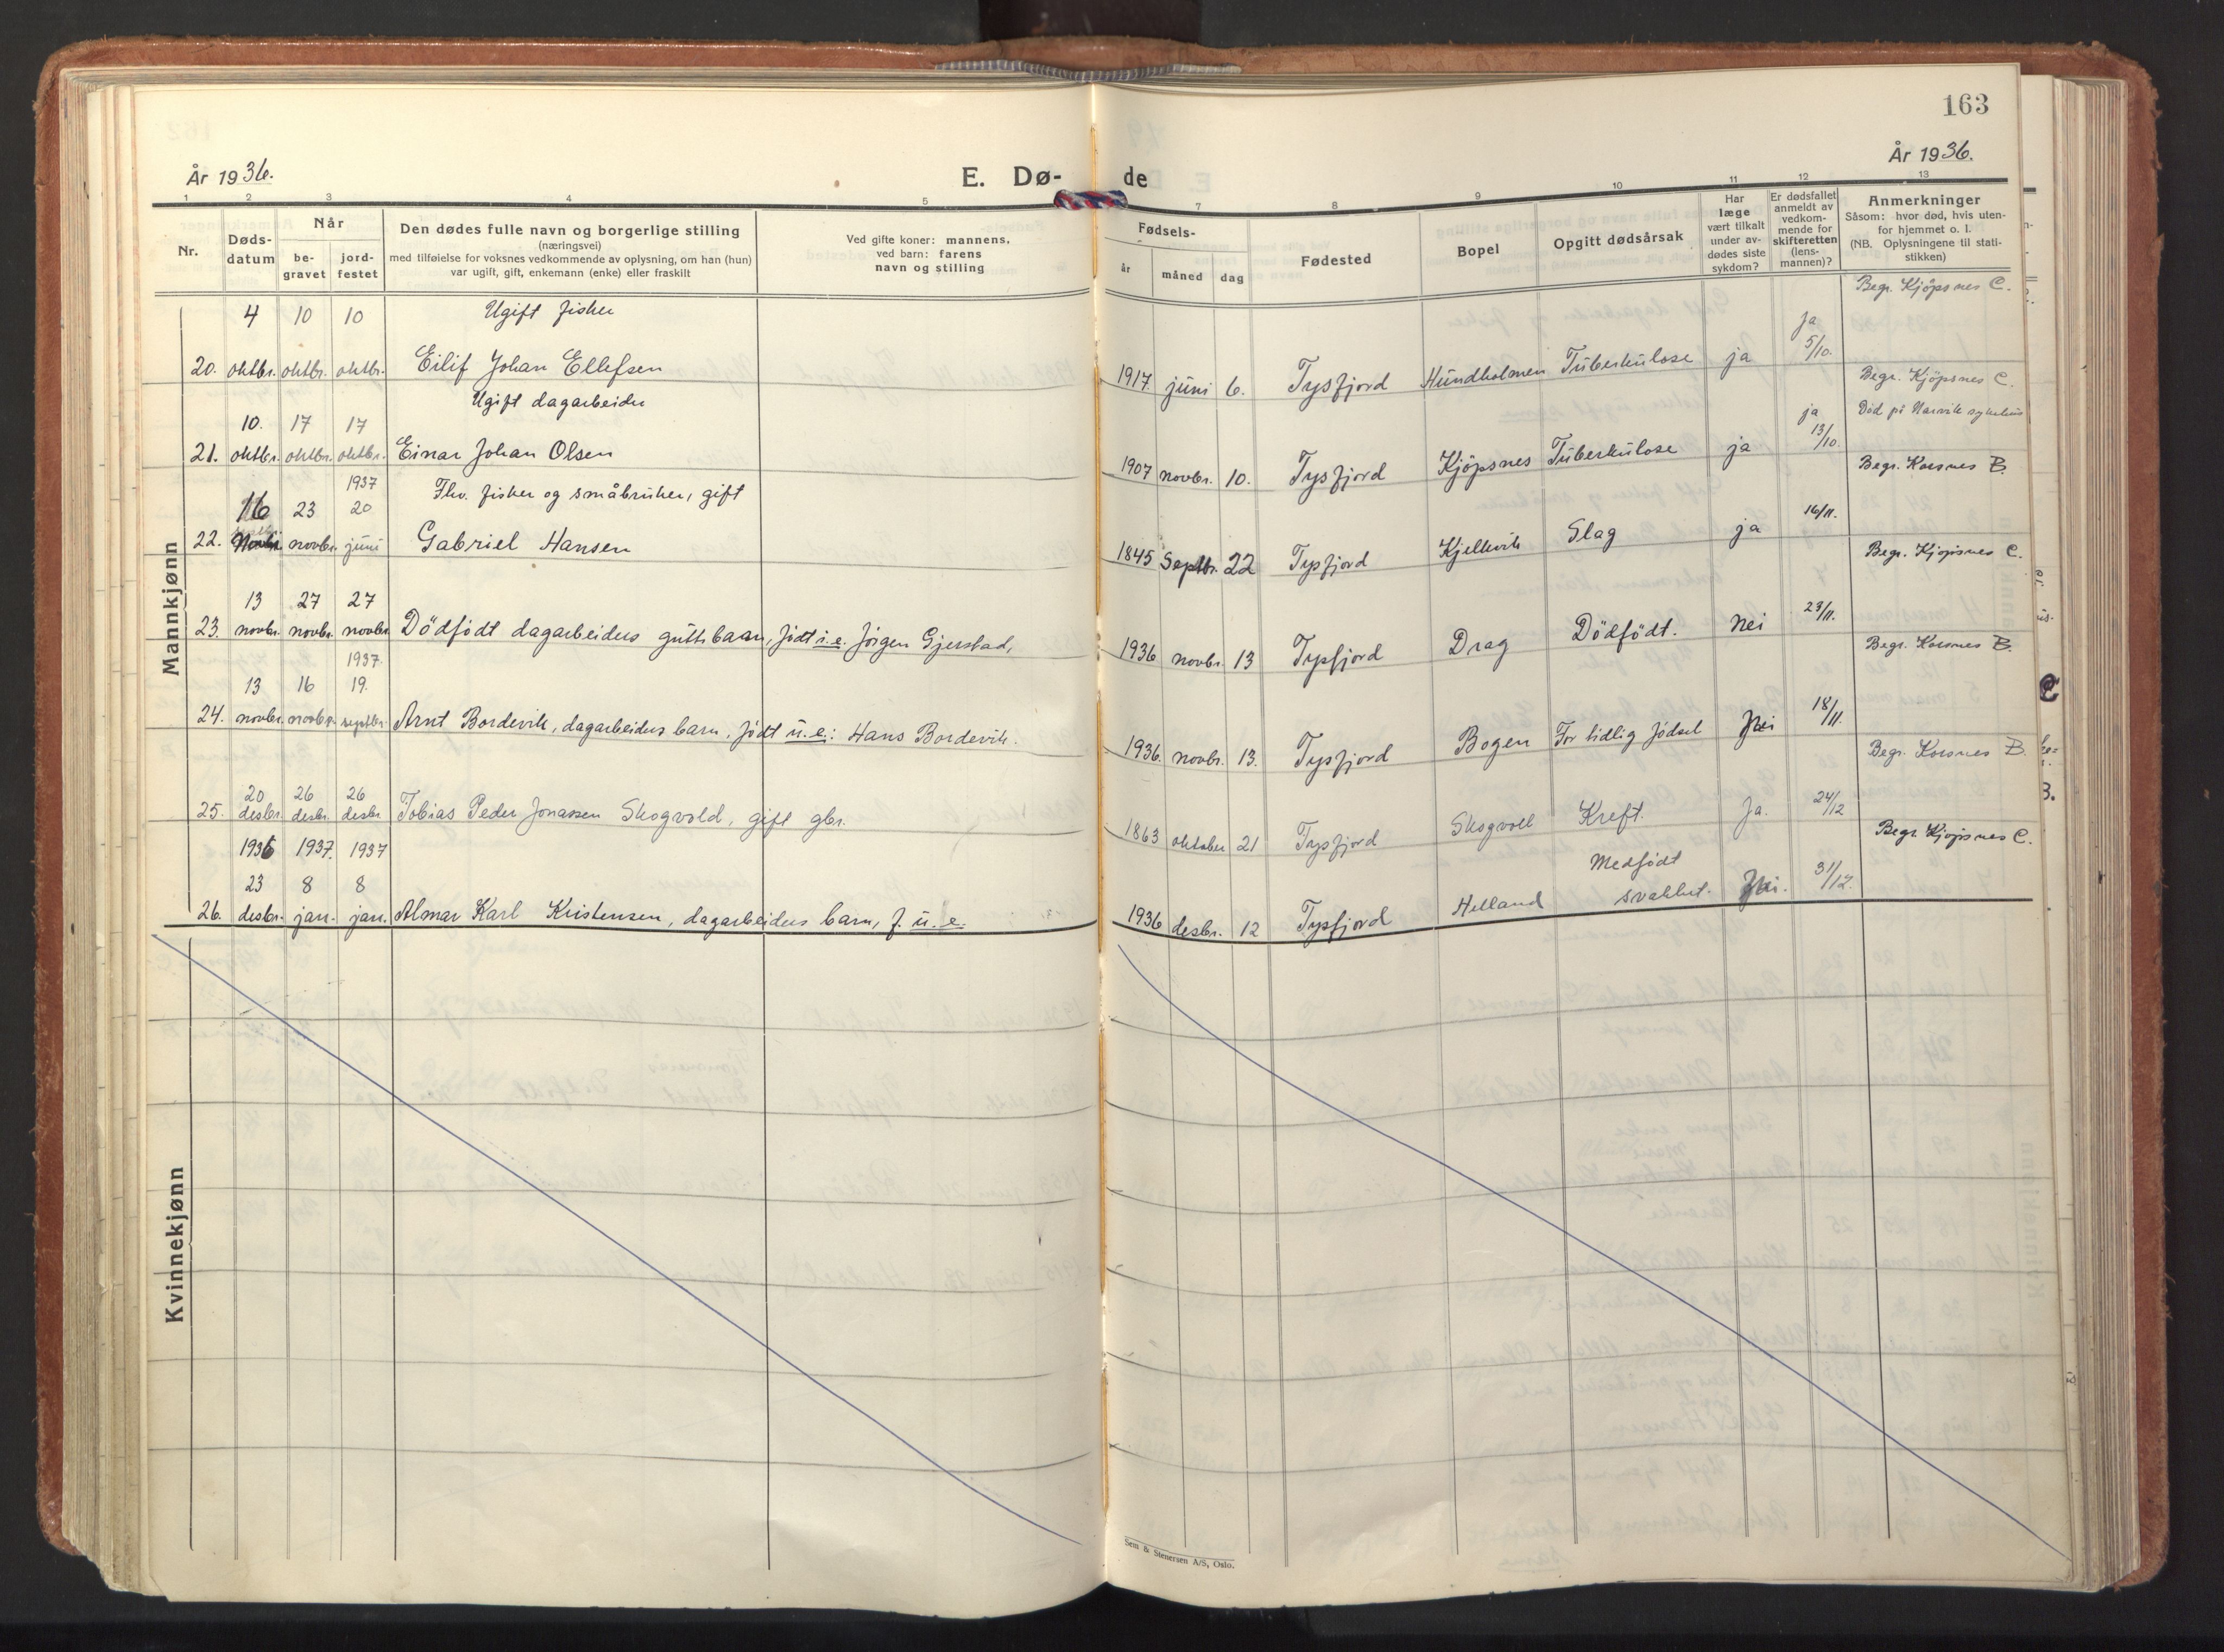 163
År 1936.
År 1936.
E. Dø-
de
1 2 3 4 5 7 8 9 10 11 12 13
Nr.
Døds-
datum
Når
be-
gravet
jord-
festet
Den dødes fulle navn og borgerlige stilling
(næringsvei)
med tilføielse for voksnes vedkommende av oplysning, om han (hun)
var ugift, gift, enkemann (enke) eller fraskilt
Ved gifte koner: mannens,
ved barn: farens
navn og stilling
Fødsels-
år måned dag
Fødested
Bopel
Opgitt dødsårsak
Har
læge
vært tilkalt
under av-
dødes siste
sykdom?
Er dødsfallet
anmeldt av
vedkom-
mende for
skifteretten
(lens-
mannen)?
Anmerkninger
Såsom: hvor død, hvis uten-
for hjemmet o. l.
(NB. Oplysningene til stati-
stikken)
Mannkjønn
4 10 10 Ugift fisker Begr. Kjöpsnes C.
20. oktbr. oktbr. oktbr. Eilif Johan Ellefsen 1917 juni 6. Tysfjord Hundholmen Tuberkulose ja Ja 5/10.
Ugift dagarbeider Begr. Kjöpsnes C.
10. 17 17 Död på Narvik sykehus
21. oktbr. oktbr. oktbr. Einar Johan Olsen 1907 novbr. 10. Tysfjord Kjöpsnes Tuberkulose ja ja 13/10.
1937 Fhv. fisker og småbruker, gift Begr. Korsnes B.
16 23 20
22. novbr. juni Gabriel Hansen 1845 Septbr. 22 Tysfjord Kjelkvik Slag ja 16/11.
13 27 27 Begr. Kjöpsnes C.
23. novbr. novbr. novbr. Dödfödt dagarbeiders guttebarn, födt i.e. Jörgen Gjerstad, 1936 novbr 13 Tysfjord Drag Dödfödt. Nei 23/11.
1937. Begr. Korsnes B.
13 16 19.
24. novbr. novbr. septbr. Arnt Bordevik, dagarbeiders barn, födt u.e.: Hans Bordevik. 1936. novbr. 13. Tysfjord Bogen For tidlig födsel Nei 18/11.
20 26 26 Begr. Korsnes B.
25. desbr. desbr. desbr. Tobias Peder Jonassen Skogvold, gift gbr. 1863 oktober 21 Tysfjord Skogvoll Kreft. Ja. 24/12
1936 1937. 1937 Begr. Kjöpsnes C.
23 8 8 Medfödt
26. desbr. jan. jan. Almar Karl Kristensen, dagarbeiders barn, f. u.e. 1936 desbr. 12 Tysfjord Helland svakhet. Nei. 31/12.
Kvinnekjønn
Sem & Stenersen A/S, Oslo.